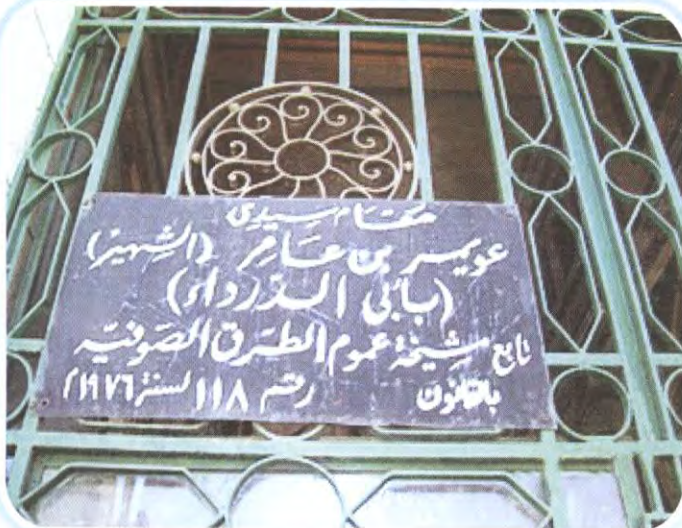 مقام سيدى
عويمر بن عامر (الشهير)
(بأبى الدرداء)
تابع مشيخة عموم الطرق الصوفيه
بالقانون رقم ١١٨ لسنة ١٩٧٦م